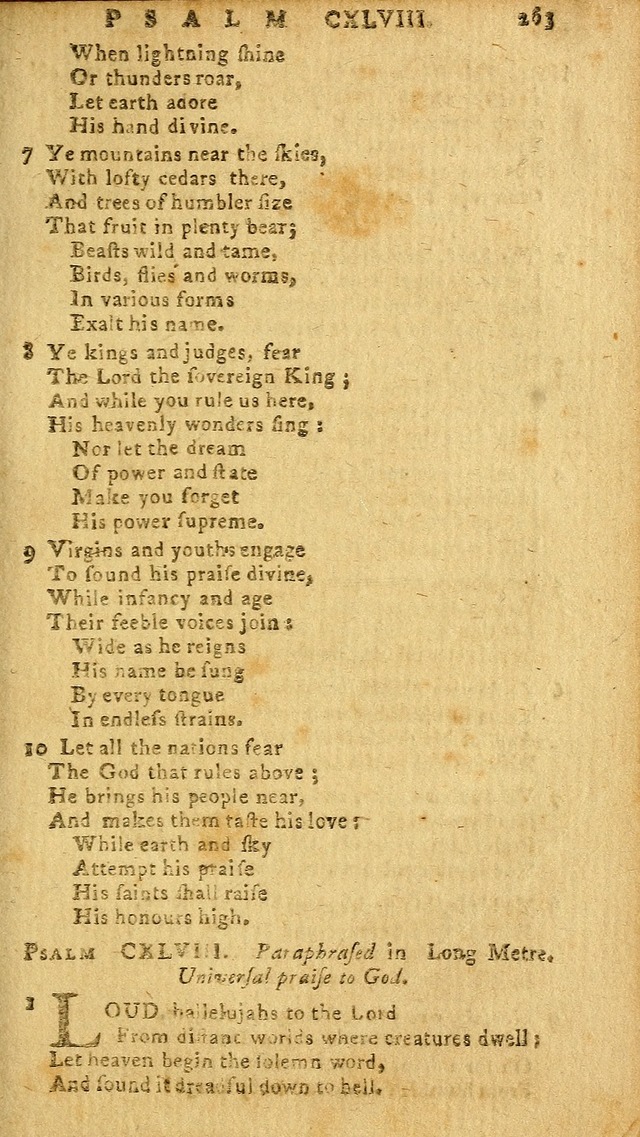 PSALM CXLVIII. 263
When lightning ſhine
Or thunders roar,
Let earth adore
His hand divine.
7 Ye mountains near the ſkies,
With lofty cedars there,
And trees of humbler ſize
That fruit in plenty bear;
Beaſts wild and tame,
Birds, flies and worms,
In various forms
Exalt his name.
8 Ye kings and judges, fear
The Lord the ſovereign King ;
And while you rule us here,
His heavenly wonders ſing :
Nor let the dream
Of power and ſtate
Make you forget
His power ſupreme.
9 Virgins and youths engage
To ſound his praiſe divine,
While infancy and age
Their feeble voices join :
Wide as he reigns
His name be ſung
By every tongue
In endleſs ſtrains.
10 Let all the nations fear
The God that rules above ;
He brings his people near,
And makes them taſte his love :
While earth and ſky
Attempt his praiſe
His ſaints ſhall raiſe
His honours high.
PSALM CXLVIII. Paraphraſed in Long Metre.
Univerſal praiſe to God.
1 LOUD hallelujahs to the Lord
From diſtant worlds where creatures dwell ;
Let heaven begin the ſolemn word,
And ſound it dreadful down to hell.